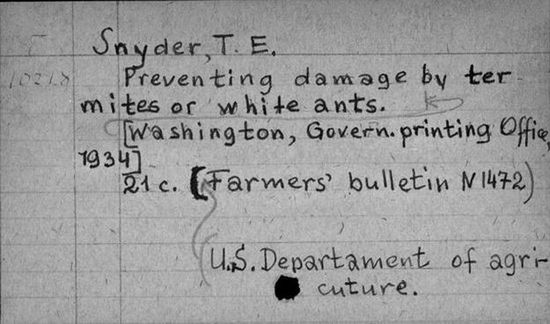 Snyder, T. E.
Preventing damage by ter
mites or white ants.
[Washington, Govern. printing Office,
1934]
21 c. [Farmers' bulletin N 1472)
U.S. Departament of agri-
cuture.